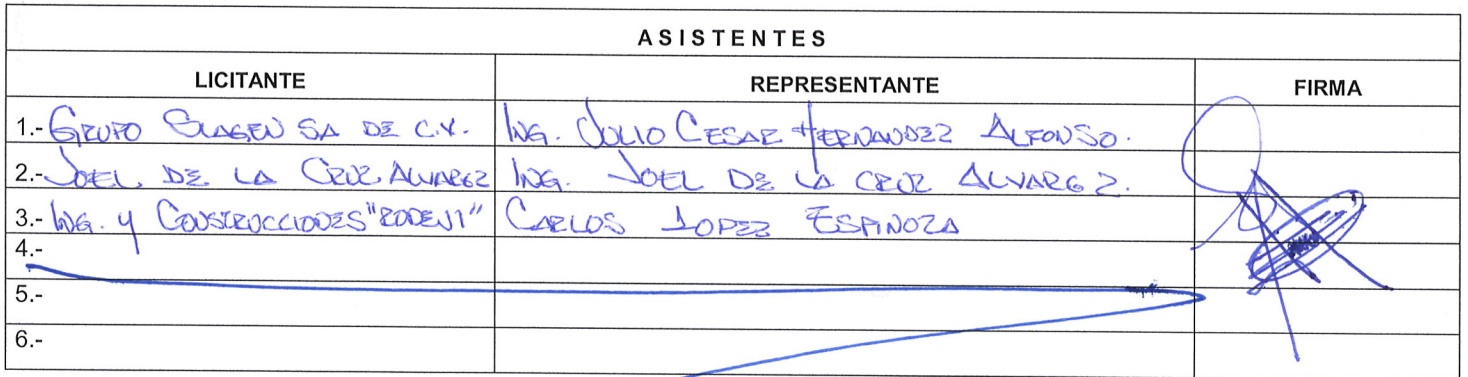 ASISTENTES
LICITANTE REPRESENTANTE FIRMA
1.- GRUPO SLAGEN SA DE C.V. ING. JULIO CESAR HERNANDEZ ALFONSO.
2.- JOEL DE LA CRUZ ALVAREZ ING. JOEL DE LA CRUZ ALVAREZ.
3.- ING. Y CONSTRUCCIONES "RODEVI" CARLOS LOPEZ ESPINOZA
4.-
5.-
6.-